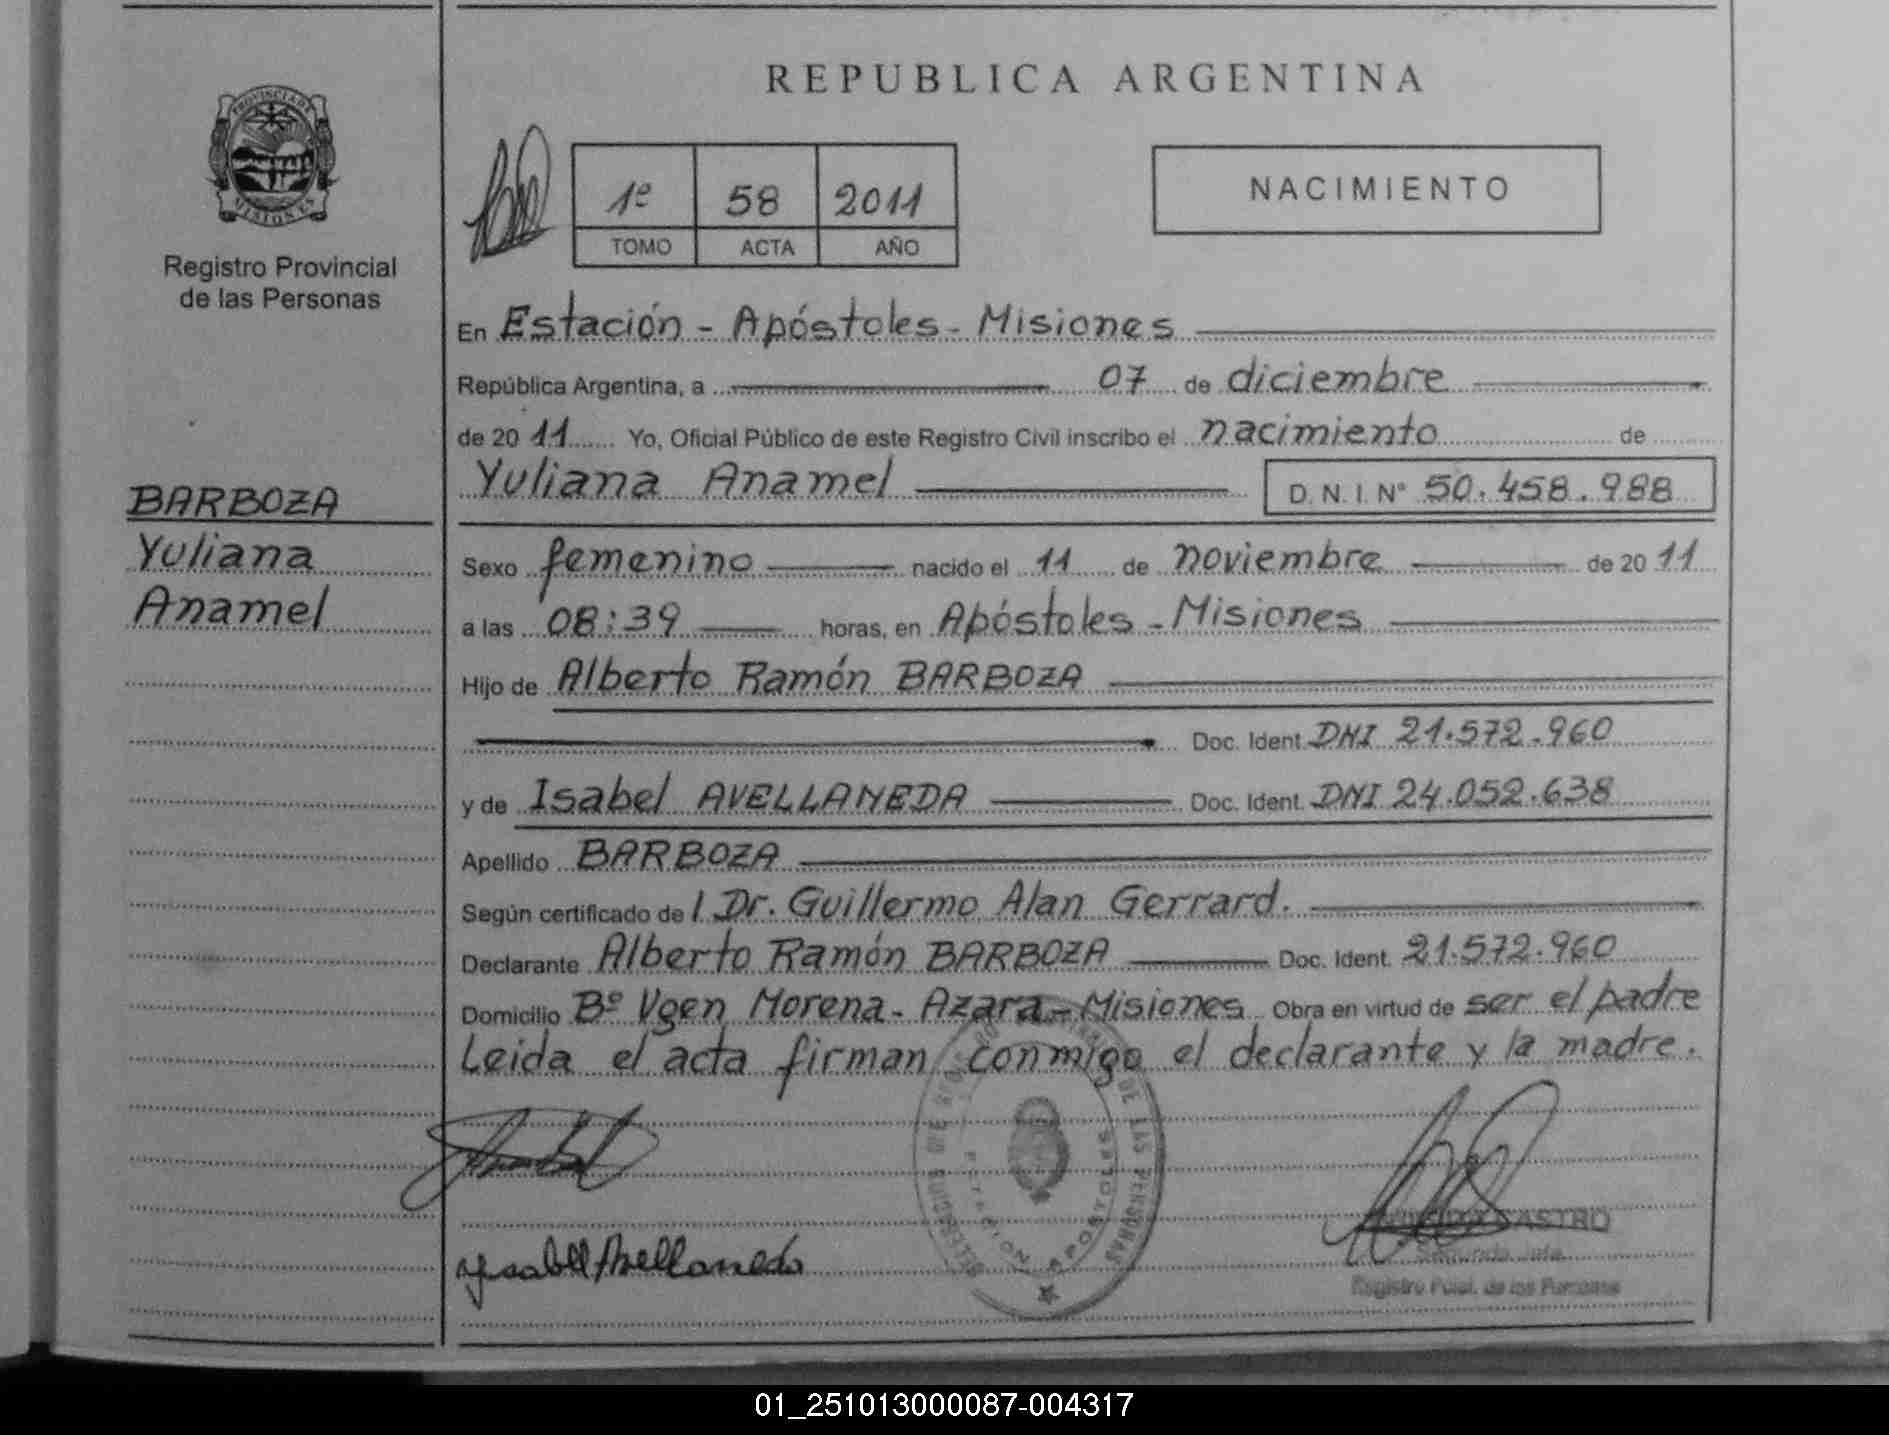 PROVINCIA DE
MISIONES
Registro Provincial
de las Personas
BARBOZA
Yuliana
Anamel
REPUBLICA ARGENTINA
1º 58 2011
TOMO ACTA AÑO
NACIMIENTO
En Estación - Apóstoles - Misiones
República Argentina, a 07 de diciembre
de 20 11 Yo, Oficial Público de este Registro Civil inscribo el nacimiento de
Yuliana Anamel D. N. I. Nº 50.458.988
Sexo femenino nacido el 11 de noviembre de 20 11
a las 08:39 horas, en Apóstoles - Misiones
Hijo de Alberto Ramón BARBOZA
Doc. Ident. DNI 21.572.960
y de Isabel AVELLANEDA Doc. Ident. DNI 24.052.638
Apellido BARBOZA
Según certificado de l Dr. Guillermo Alan Gerrard.
Declarante Alberto Ramón BARBOZA Doc. Ident. 21.572.960
Domicilio Bº Vgen Morena - Azara - Misiones Obra en virtud de ser el padre
Leida el acta firman conmigo el declarante y la madre.
DE LAS PERSONAS
ESTACION APOSTOLES
CASTRO
Segunda Jefe
Registro Pcial. de las Personas
Ysabel Avellaneda
01_251013000087-004317